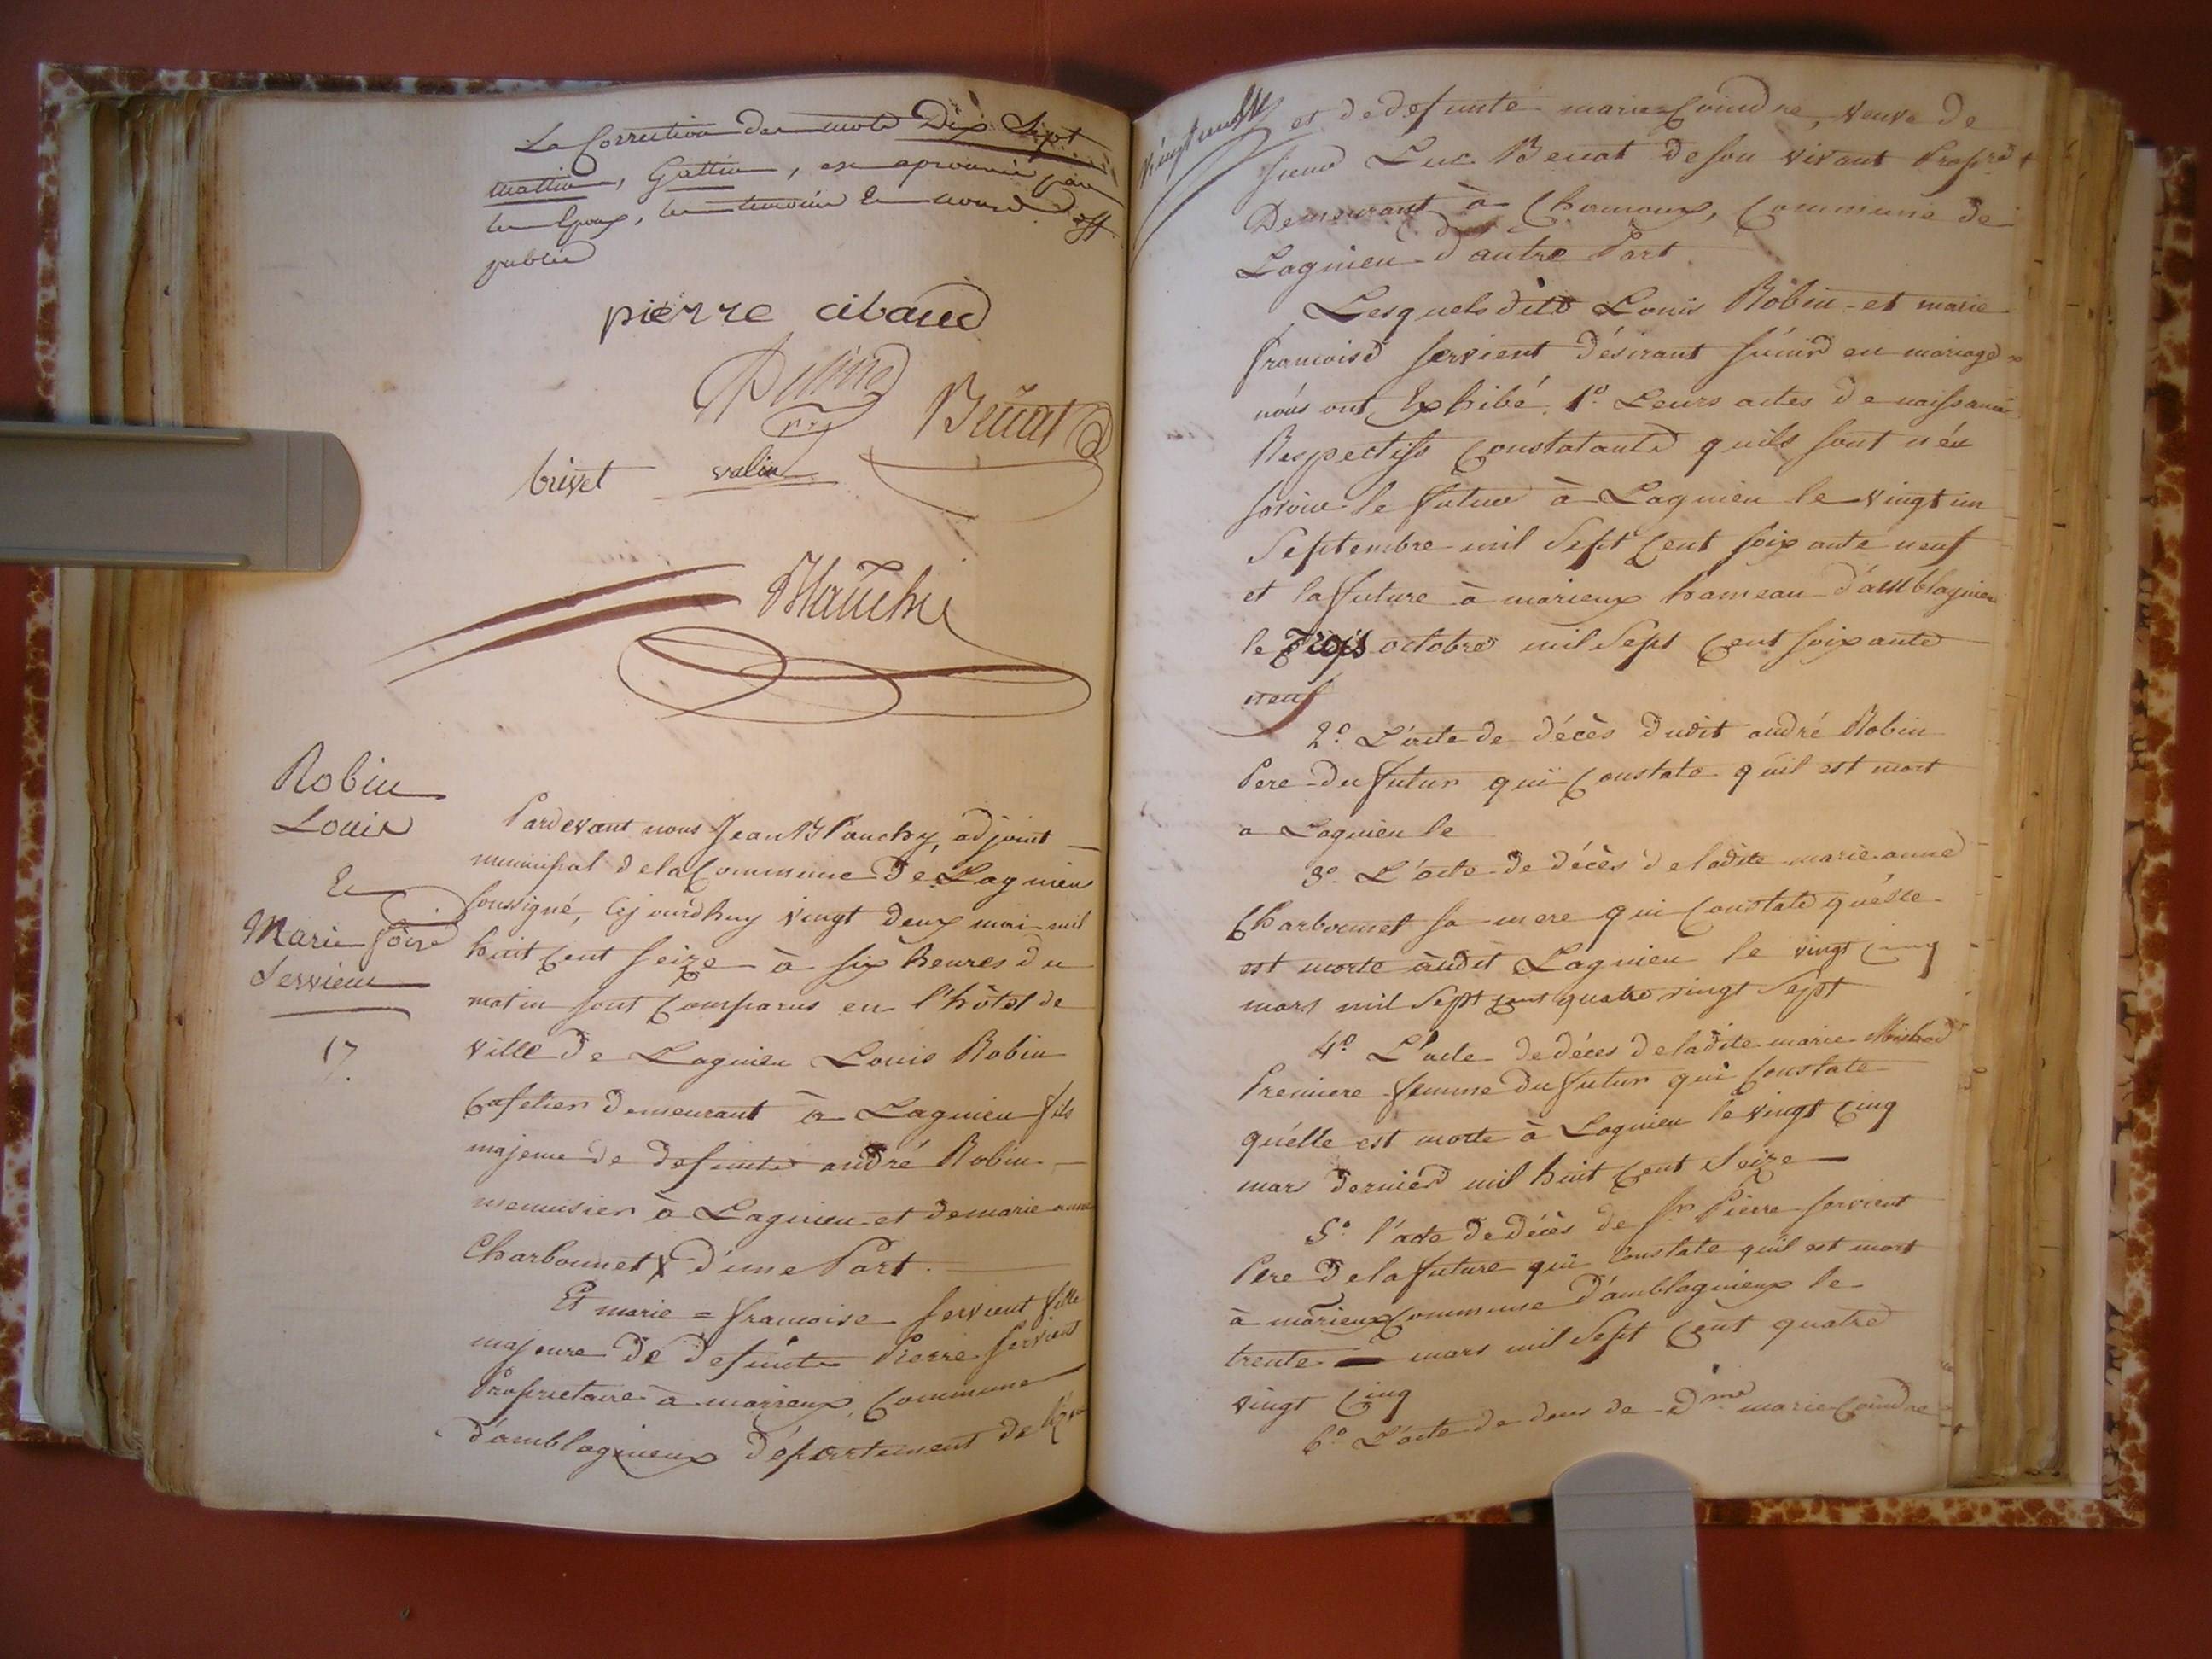 La Correction des mots Dix Sept
mattin, Gattin, est aprouvée par
les Epoux, les temoins Et nous off.
public
pierre cibaud
Benat
brivet valin
Blanchy
Robin
Louis
Et
Marie foise
Servient
17.
Pardevant nous Jean Blanchy, adjoint
municipal de la Commune De Lagnieu
soussigné, Cejourd'huy vingt deux mai mil
huit Cent seize à six heures du
matin sont Comparus en l'hôtel de
Ville de Lagnieu Louis Robin
Cafetier demeurant à Lagnieu fils
majeure de defunte andré Robin
menuisier à Lagnieu et de marie anne
Charbonnet d'une Part.
Et marie = francoise servient fille
majeure de defunte Pierre servient
Propriétaire à marieux, Commune
d'amblagnieux département de
et de defunte marie Coindre, veuve de
sieur Luc Benat de son vivant Propre
Demeurant à Chamoux, Commune de
Lagnieu d'autre Part
Lesquels dits Louis Robin et marie
francoise servient désirant s'unir en mariage
nous ont Exhibé. 1º. Leurs actes de naissance
Respectifs Constatants quils sont nés
savoir le futur à Lagnieu le vingt un
Septembre mil Sept Cent soixante neuf
et la future à marieux hameau d'amblagnieu
le Trois octobre mil Sept Cent soixante
neuf
2º. L'acte de décès dudit andré Robin
Pere du futur qui Constate qu'il est mort
a Lagnieu le
3º. L'acte de décès de ladite marie anne
Charbonnet sa mere qui Constate qu'elle
est morte audit Lagnieu le vingt Cinq
mars mil Sept Cent quatre vingt Sept
4º. L'acte de déces de ladite marie
Premiere femme du futur qui Constate
qu'elle est morte à Lagnieu le vingt Cinq
mars dernier mil huit Cent Seize
5º. l'acte de décès de Sr. Pierre servient
Pere de la future qui Constate quil est mort
à marieux Commune d'amblagnieux le
trente mars mil Sept Cent quatre
vingt Cinq
6º. L'acte de deces de Dme marie Coindre